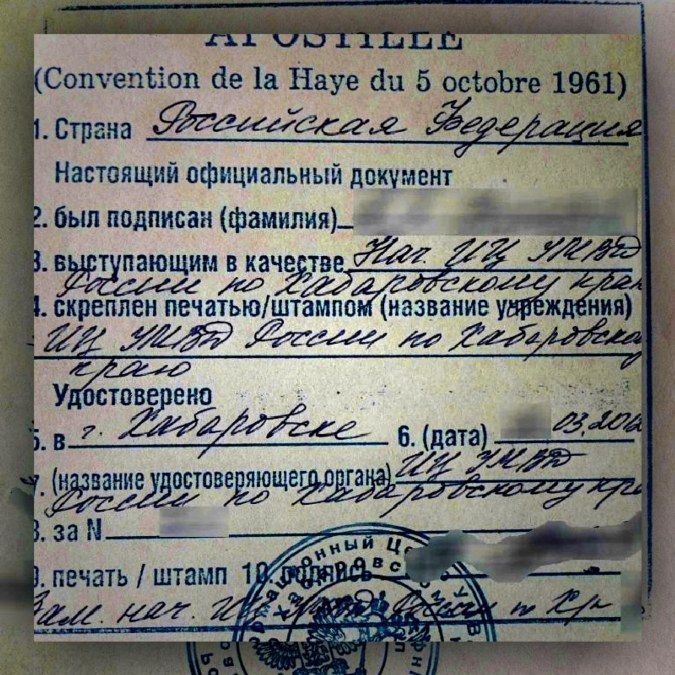 APOSTILLE
(Convention de la Haye du 5 octobre 1961)
1. Страна Российская Федерация
Настоящий официальный документ
2. был подписан (фамилия)
3. выступающим в качестве Нач. ИЦ УМВД
России по Хабаровскому краю
4. скреплен печатью/штампом (название учреждения)
ИЦ УМВД России по Хабаровско
краю
Удостоверено
5. в г. Хабаровске 6. (дата) 03.20
7. (название удостоверяющего органа) ИЦ УМВД
России по Хабаровскому кр
8. за N
9. печать / штамп 10. подпись
Зам. нач. ИЦ УМВД России по Хкр